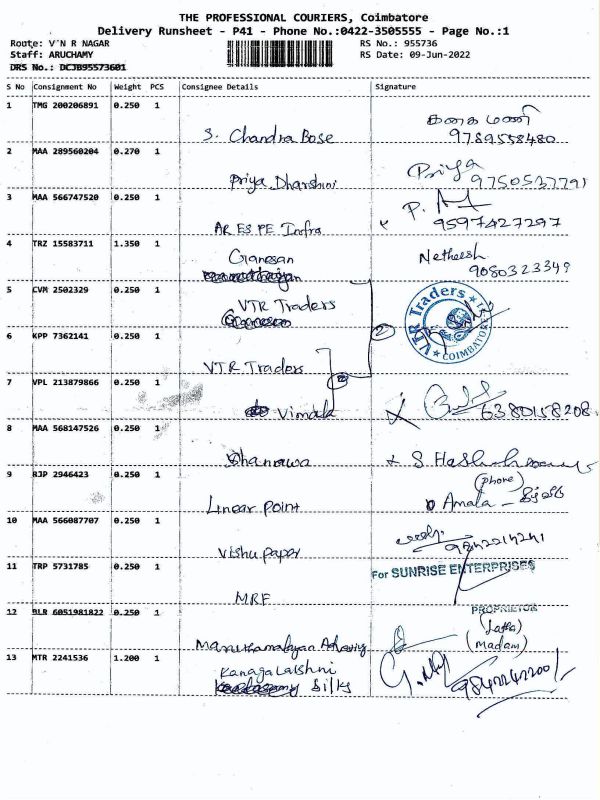 THE PROFESSIONAL COURIERS, Coimbatore
Delivery Runsheet - P41 - Phone No.:0422-3505555 - Page No.:1
Route: V N R NAGAR RS No.: 955736
Staff: ARUCHAMY RS Date: 09-Jun-2022
DRS No.: DCJB95573601
S No Consignment No Weight PCS Consignee Details Signature
1 TMG 200206891 0.250 1
S. Chandra Bose கனகமணி
9789558480
2 MAA 289560204 0.270 1
Priya Dharshini Priya
9750537791
3 MAA 566747520 0.250 1
AR ES PE Infra P.
9597427297
4 TRZ 15583711 1.350 1
Ganesan Netheesh
9080323349
5 CVM 2502329 0.250 1
VTR Traders
VTR Traders
COIMBATORE
6 KPP 7362141 0.250 1
VTR Traders
7 VPL 213879866 0.250 1
Vimala 6380158208
8 MAA 568147526 0.250 1
S
9 RJP 2946423 0.250 1
Linear Point (phone)
Amala -
10 MAA 566087707 0.250 1
Vishu paper
11 TRP 5731785 0.250 1
MRF For SUNRISE ENTERPRISES
12 BLR 6051981822 0.250 1
PROPRIETOR
(Latha)
(Madam)
13 MTR 2241536 1.200 1
Kanagalakshmi
Silks